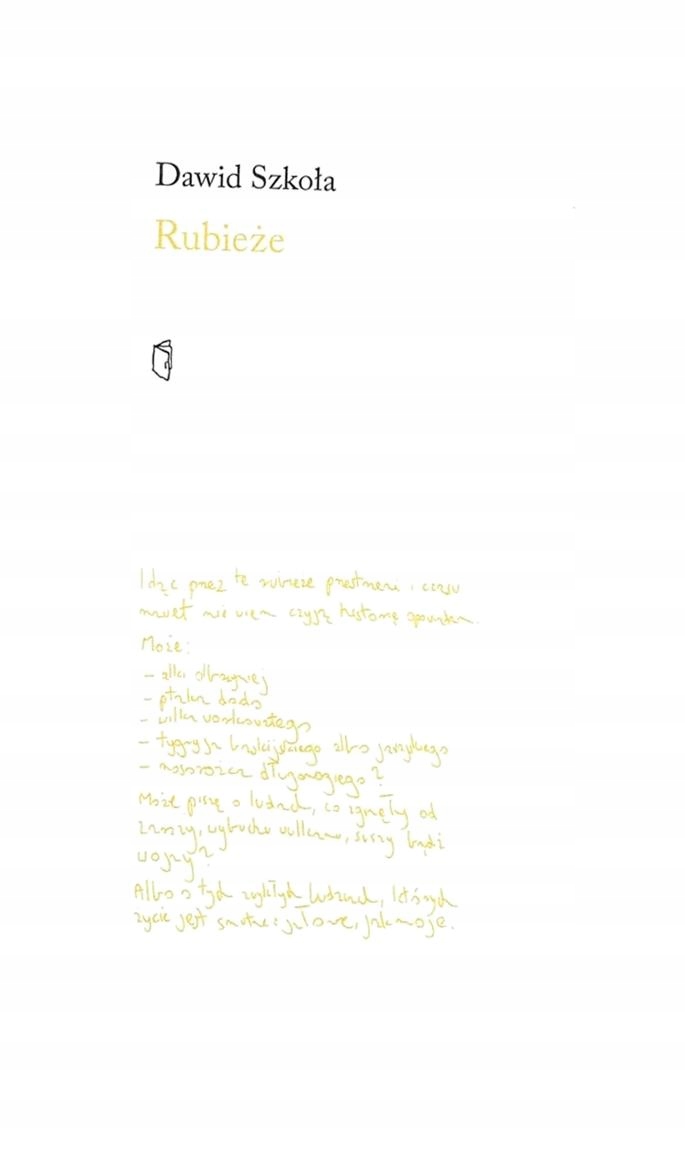 Dawid Szkoła
Rubieże
Idąc przez te rubieże przestrzeni i czasu
nawet nie wiem czyją historię opowiadam.
Może:
- alki olbrzymiej
- ptaka dodo
- wilka workowatego
- tygrysa balijskiego albo jawajskiego
- nosorożca długorogiego?
Może piszę o ludziach, co zginęły od
zarazy, wybuchu wulkanu, suszy bądź
wojny?
Albo o tych zwykłych ludziach, których
życie jest smutne i jałowe, jak moje.